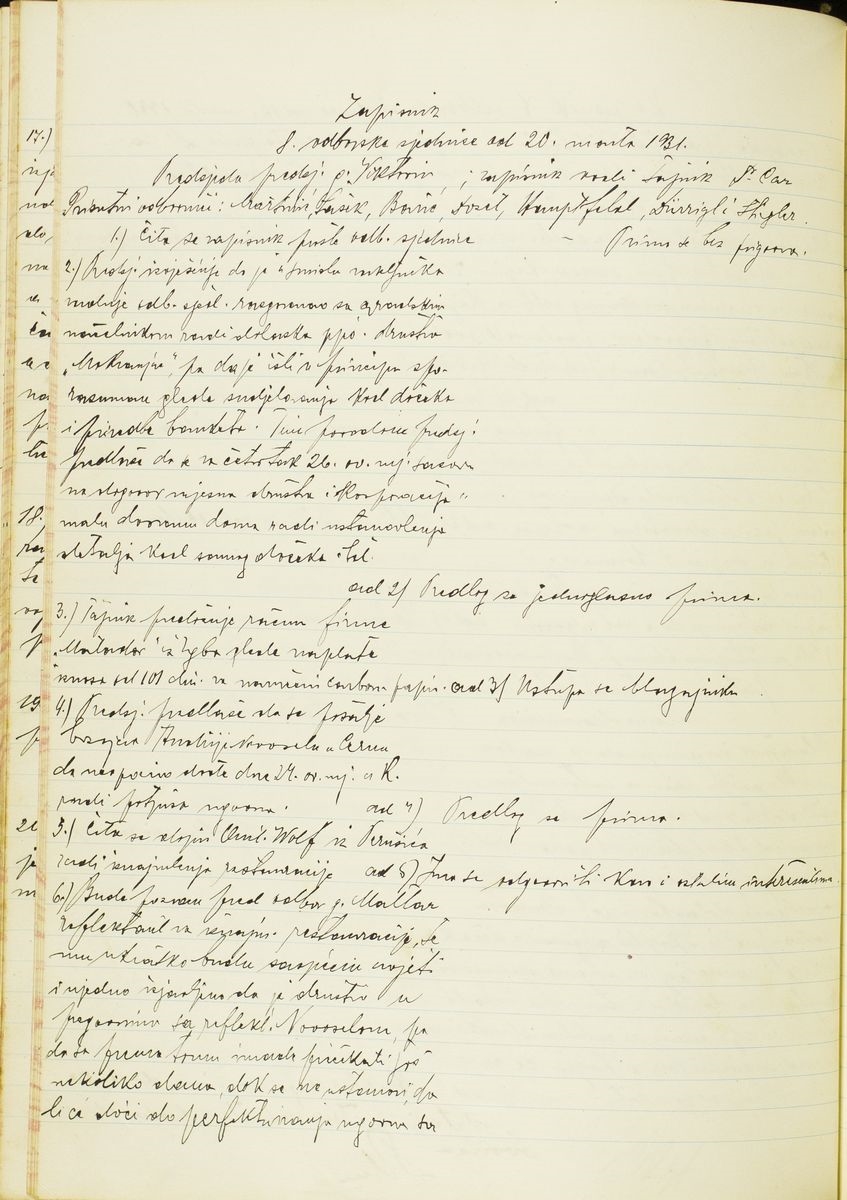 Zapisnik
8. odborske sjednice od 20. marta 1931.
Predsjeda predsj. g. Viktorin, ; zapisnik vodi tajnik Dr. Car
Prisutni odbornici: Martinić, Lasek, Borić, Dozet, Hamptfeld, Dürrigl i Stegler.
1.) Čita se zapisnik prošle odb. sjednice – Prima se bez prigovora.
2.) Predsj. izvješćuje da je u smislu zaključka
zadnje odb. sjed. razgovarao sa gradskim
načelnikom radi dolaska pjev. društva
„Mokranjac", pa da je išli u principu spo-
razuman glede sudjelovanja kod dočeka
i priredbe banketa. Tim povodom predsj.
predlaže da se za četvrtak 26. ov. mj. sazove
na dogovor mjesna društva i korporacije u
malu dvoranu doma radi ustanovljenja
detalja kod samog dočeka itd.
ad 2) Predlog se jednoglasno prima.
3.) Tajnik predočuje račun firme
„Matador" iz Zgba glede naplate
iznosa od 101 din. za naručeni carbon papir. ad 3) Ustupa se blagajniku.
4.) Predsj. predlaže da se pošalje
brzojav Andriji Novoselu u Cerna
da neopozivo dođe dne 24. ov. mj. u K.
radi potpisa ugovora. ad 4) Predlog se prima.
5.) Čita se dopis Emil. Wolf iz Perušića
radi iznajmljenja restauracije ad 5) Ima se odgovoriti kao i ostalim interesentima.
6.) Bude pozvan pred odbor g. Mallar
reflektant za iznajm. restauracije, te
mu ukratko budu saopćeni uvjeti
i ujedno izjavljeno da je društvo u
pregovorima sa reflekt. Novoselom, pa
da se prema tomu imade pričekati još
nekoliko dana, dok se ne ustanovi, da
li će doći do perfektuiranja ugovora sa